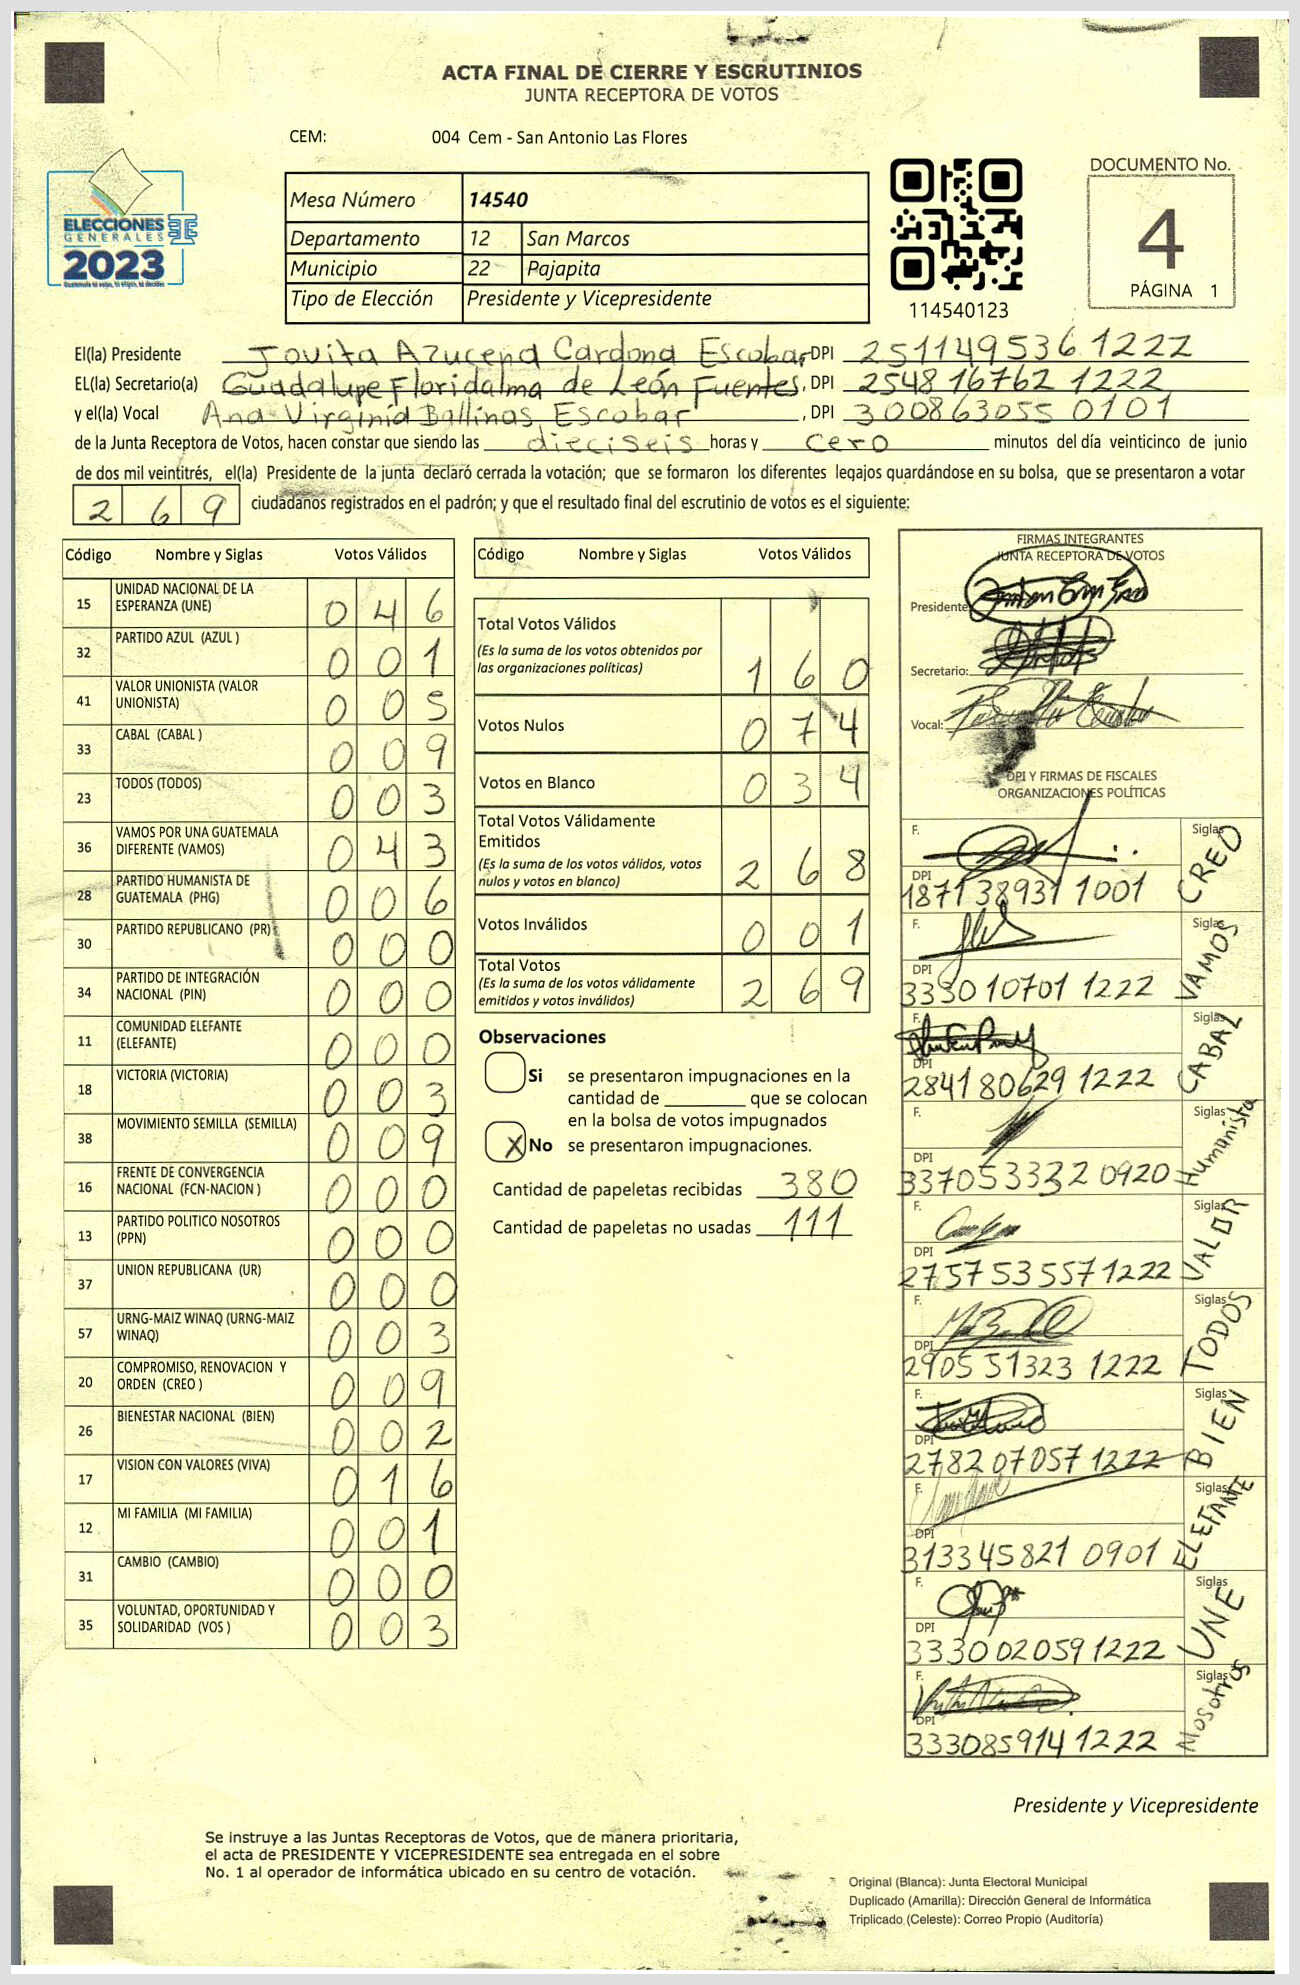 ACTA FINAL DE CIERRE Y ESCRUTINIOS
JUNTA RECEPTORA DE VOTOS
CEM: 004 Cem - San Antonio Las Flores
ELECCIONES
GENERALES
2023
Mesa Número 14540
Departamento 12 San Marcos
Municipio 22 Pajapita
Tipo de Elección Presidente y Vicepresidente
114540123
DOCUMENTO No.
4
PÁGINA 1
El(la) Presidente Jovita Azucena Cardona Escobar DPI 251149536 1222
EL(la) Secretario(a) Guadalupe Floridalma de León Fuentes, DPI 2548 16762 1222
y el(la) Vocal Ana Virginia Ballinas Escobar , DPI 300863055 0101
de la Junta Receptora de Votos, hacen constar que siendo las dieciseis horas y cero minutos del día veinticinco de junio
de dos mil veintitrés, el(la) Presidente de la junta declaró cerrada la votación; que se formaron los diferentes legajos quardándose en su bolsa, que se presentaron a votar
269 ciudadanos registrados en el padrón; y que el resultado final del escrutinio de votos es el siguiente:
Código Nombre y Siglas Votos Válidos
15 UNIDAD NACIONAL DE LA ESPERANZA (UNE) 046
32 PARTIDO AZUL (AZUL ) 001
41 VALOR UNIONISTA (VALOR UNIONISTA) 005
33 CABAL (CABAL ) 009
23 TODOS (TODOS) 003
36 VAMOS POR UNA GUATEMALA DIFERENTE (VAMOS) 043
28 PARTIDO HUMANISTA DE GUATEMALA (PHG) 006
30 PARTIDO REPUBLICANO (PR) 000
34 PARTIDO DE INTEGRACIÓN NACIONAL (PIN) 000
11 COMUNIDAD ELEFANTE (ELEFANTE) 000
18 VICTORIA (VICTORIA) 003
38 MOVIMIENTO SEMILLA (SEMILLA) 009
16 FRENTE DE CONVERGENCIA NACIONAL (FCN-NACION ) 000
13 PARTIDO POLITICO NOSOTROS (PPN) 000
37 UNION REPUBLICANA (UR) 000
57 URNG-MAIZ WINAQ (URNG-MAIZ WINAQ) 003
20 COMPROMISO, RENOVACION Y ORDEN (CREO ) 009
26 BIENESTAR NACIONAL (BIEN) 002
17 VISION CON VALORES (VIVA) 016
12 MI FAMILIA (MI FAMILIA) 001
31 CAMBIO (CAMBIO) 000
35 VOLUNTAD, OPORTUNIDAD Y SOLIDARIDAD (VOS ) 003
Código Nombre y Siglas Votos Válidos
Total Votos Válidos
(Es la suma de los votos obtenidos por
las organizaciones políticas) 160
Votos Nulos 074
Votos en Blanco 034
Total Votos Válidamente
Emitidos
(Es la suma de los votos válidos, votos
nulos y votos en blanco) 268
Votos Inválidos 001
Total Votos
(Es la suma de los votos válidamente
emitidos y votos inválidos) 269
Observaciones
Si se presentaron impugnaciones en la
cantidad de ________ que se colocan
en la bolsa de votos impugnados
X No se presentaron impugnaciones.
Cantidad de papeletas recibidas 380
Cantidad de papeletas no usadas 111
FIRMAS INTEGRANTES
JUNTA RECEPTORA DE VOTOS
Presidente
Secretario:
Vocal:
DPI Y FIRMAS DE FISCALES
ORGANIZACIONES POLÍTICAS
F. Siglas CREO
DPI 1871 38931 1001
F. Siglas VAMOS
DPI 3330 10701 1222
F. Siglas CABAL
DPI 2841 80629 1222
F. Siglas Humanista
DPI 337053332 0920
F. Siglas VALOR
DPI 2757 53557 1222
F. Siglas TODOS
DPI 2905 51323 1222
F. Siglas BIEN
DPI 2782 07057 1222
F. Siglas ELEFANTE
DPI 3133 45821 0901
F. Siglas UNE
DPI 3330 02059 1222
F. Siglas Nosotros
DPI 333085914 1222
Presidente y Vicepresidente
Se instruye a las Juntas Receptoras de Votos, que de manera prioritaria,
el acta de PRESIDENTE Y VICEPRESIDENTE sea entregada en el sobre
No. 1 al operador de informática ubicado en su centro de votación.
Original (Blanca): Junta Electoral Municipal
Duplicado (Amarilla): Dirección General de Informática
Triplicado (Celeste): Correo Propio (Auditoría)